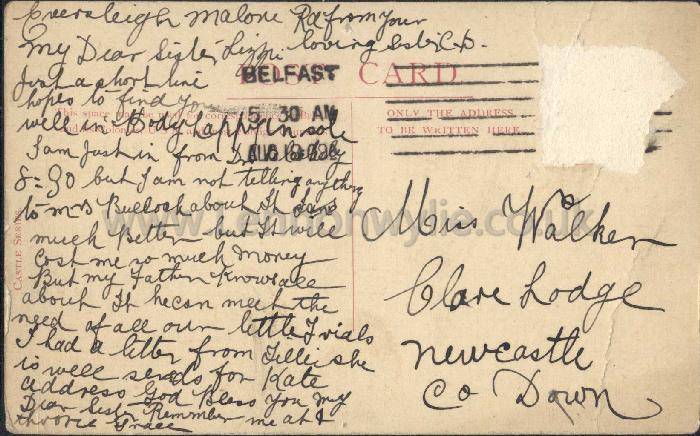 Eversleigh Malone Rd from your
loving Sister C.D.
My Dear Sister Lizzie
Just a short line
hopes to find you
well in Body happy in soul
I am Just in from
8=30 but I am not telling anything
to Mrs Bullock about It
much Better but It will
cost me so much money
But my Father Knows all
about It he can meet the
need of all our little Trials
I had a letter from Tillie she
is well sends for Kate
address God Bless you my
Dear Sister Remember me at
throne Grace
POST CARD
BELFAST
5 30 AM
AUG
ONLY THE ADDRESS
TO BE WRITTEN HERE
CASTLE SERIES
Miss Walker
Clare Lodge
Newcastle
Co Down